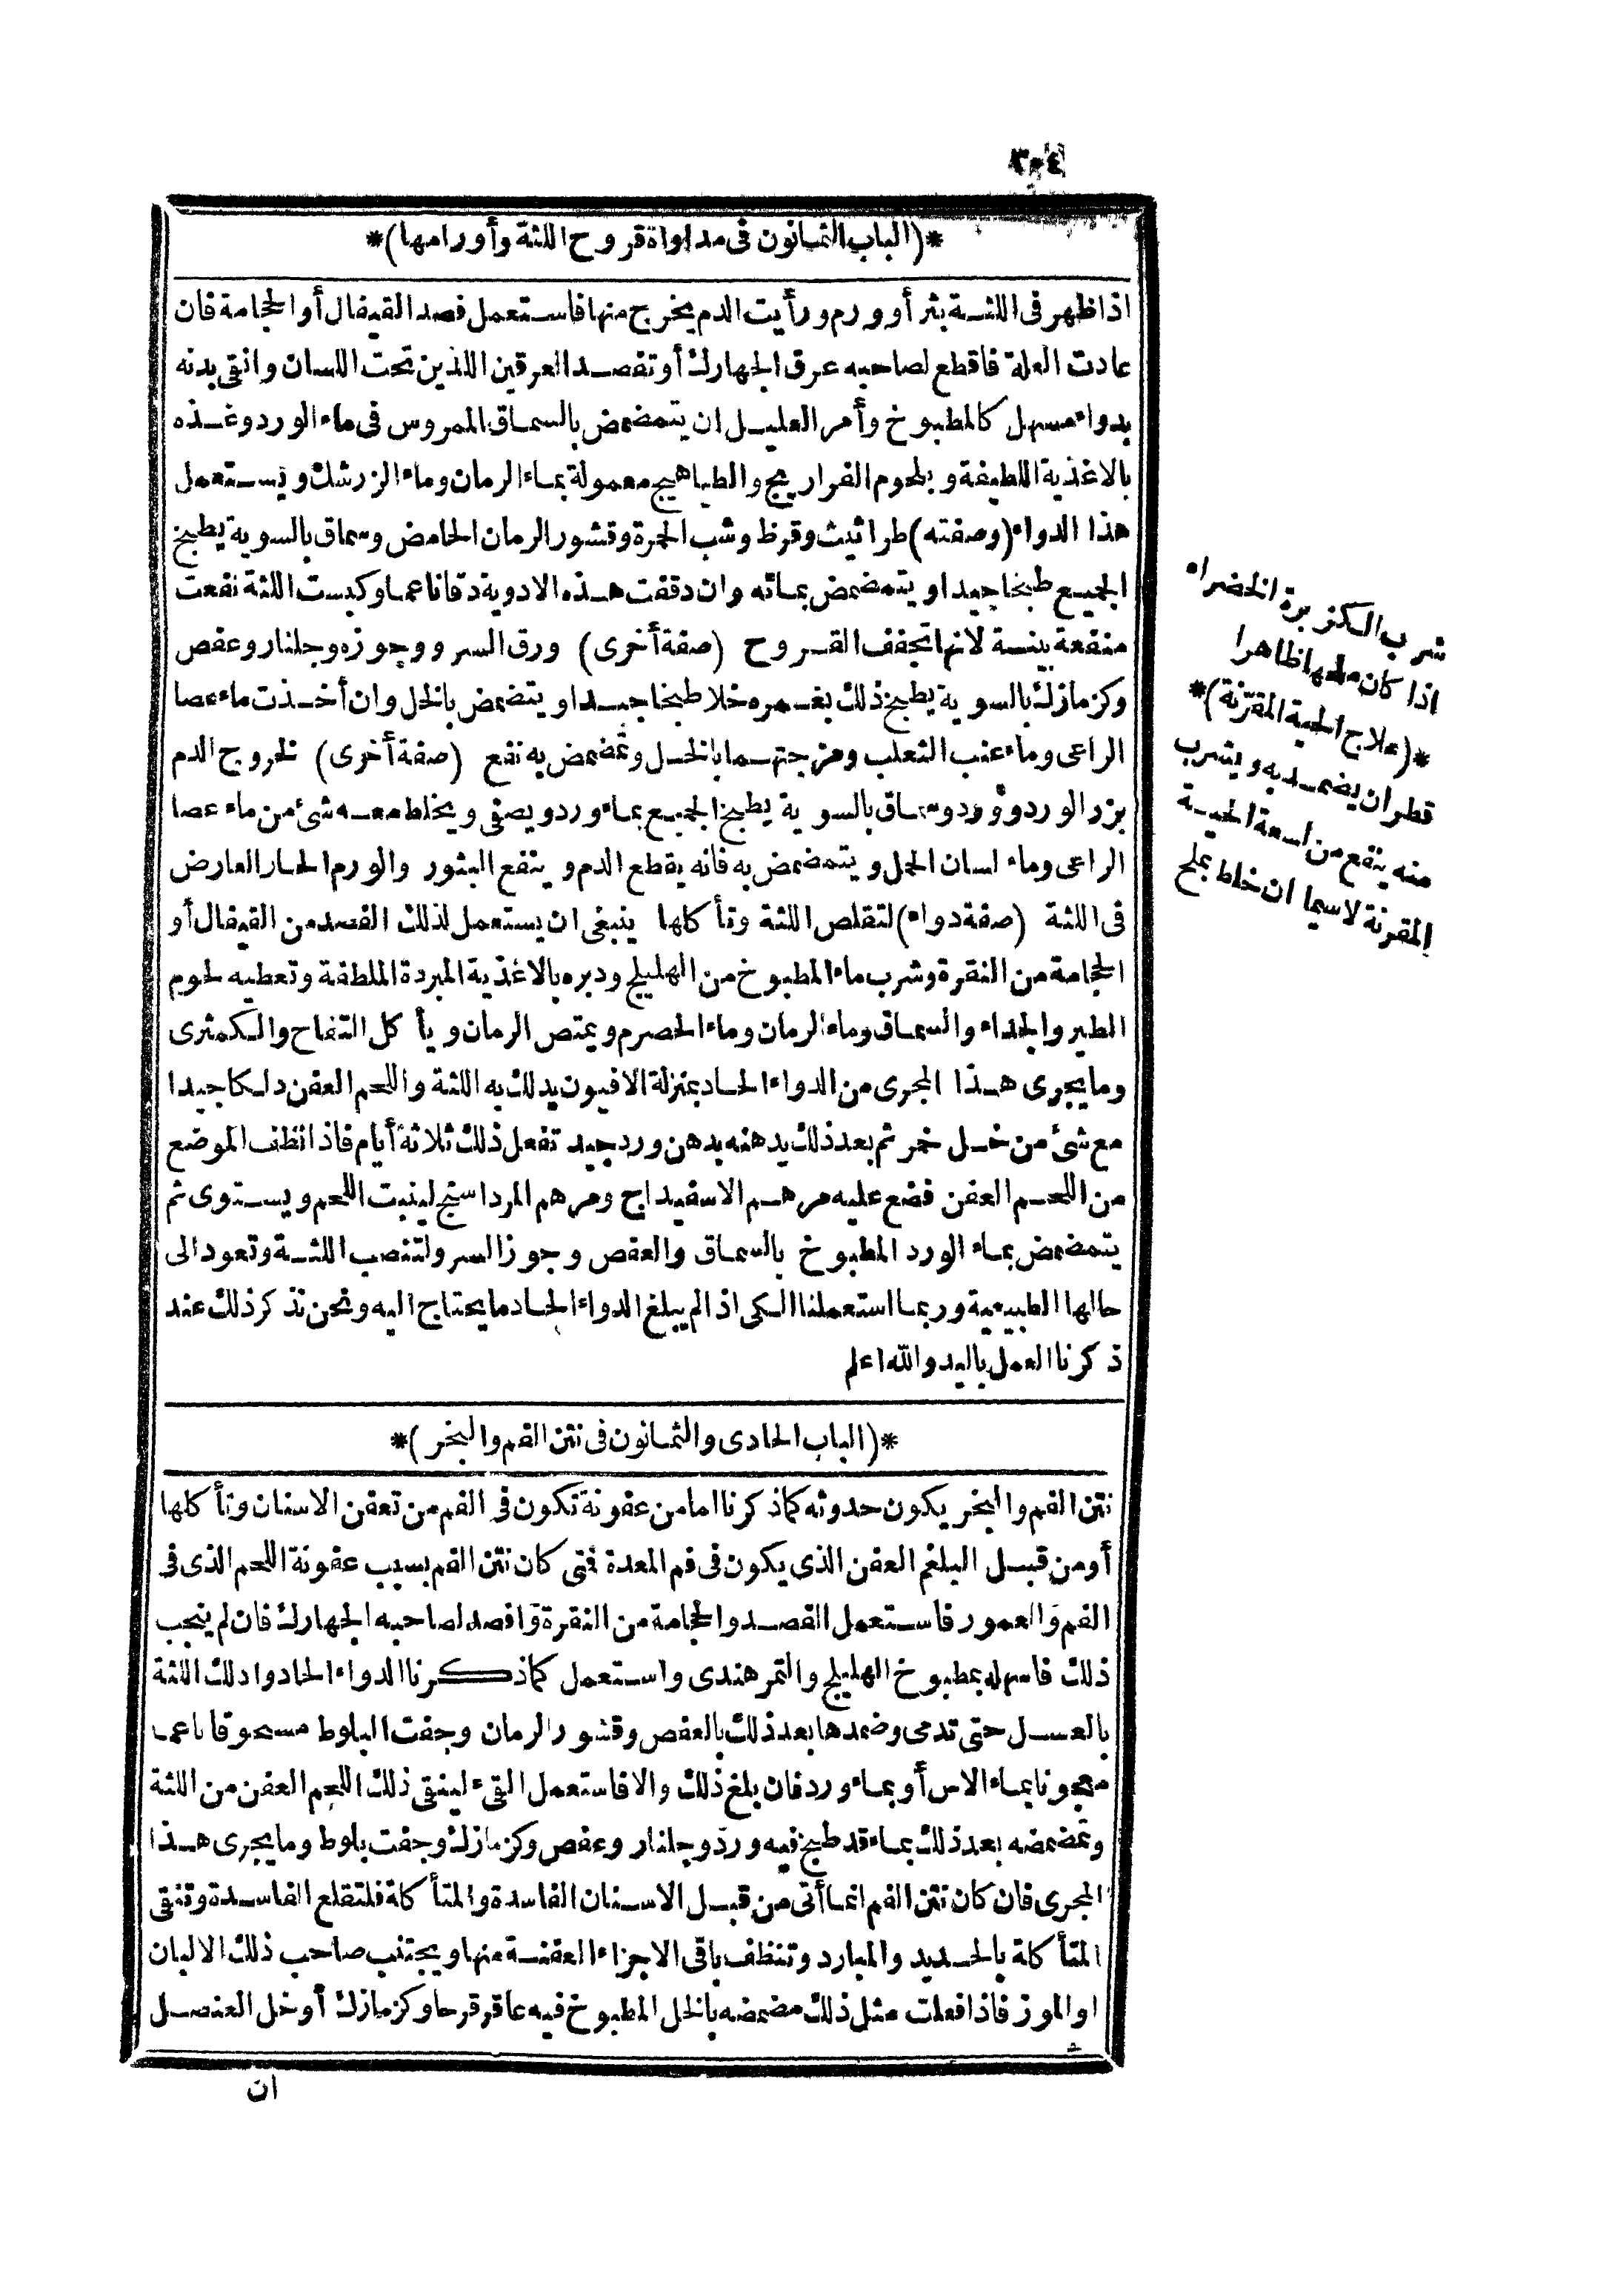 ٣٠٤
*(الباب الثمانون فى مداواة قروح اللثة وأورامها)*
اذا ظهر فى اللثة بثر أو ورم ورأيت الدم يخرج منها فاستعمل فصد القيفال أو الحجامة فان
عادت العلة فاقطع لصاحبه عرق الجهارك أو تفصد العرقين اللذين تحت اللسان وانق بدنه
بدواء مسهل كالمطبوخ وأمر العليل ان يتمضمض بالسماق الممروس فى ماء الورد وغذه
بالاغذية اللطيفة وبلحوم الفراريج والطياهيج معمولة بماء الرمان وماء الزرشك ويستعمل
هذا الدواء (وصفته) طراثيث وقرظ وشب الحمرة وقشور الرمان الحامض وسماق بالسوية يطبخ
الجميع طبخا جيدا ويتمضمض بمائه وان دققت هذه الادوية دقا ناعما وكبست اللثة نفعت
منفعة بينة لانها تجفف القروح (صفة أخرى) ورق السرو وجوزه وجلنار وعفص
وكزمازك بالسوية يطبخ ذلك بغمره خلا طبخا جيدا ويتمضمض بالخل وان أخذت ماء عصا
الراعى وماء عنب الثعلب ومزجتهما بالخل وتمضمض به نفع (صفة أخرى) لخروج الدم
بزر الورد وورد وسماق بالسوية يطبخ الجميع بماء ورد ويصفى ويخلط معه شئ من ماء عصا
الراعى وماء لسان الحمل ويتمضمض به فانه يقطع الدم وينفع البثور والورم الحار العارض
فى اللثة (صفة دواء) لتقلص اللثة وتأكلها ينبغى ان يستعمل لذلك الفصد من القيفال أو
الحجامة من النقرة وشرب ماء المطبوخ من الهليلج ودبره بالاغذية المبردة الملطفة وتعطيه لحوم
الطير والجداء والسماق وماء الرمان وماء الحصرم ويمتص الرمان ويأكل التفاح والكمثرى
وما يجرى هذا المجرى من الدواء الحاد بمنزلة الافيون يدلك به اللثة واللحم العفن دلكا جيدا
مع شئ من خل خمر ثم بعد ذلك يدهنه بدهن ورد جيد تفعل ذلك ثلاثة أيام فاذا نظف الموضع
من اللحم العفن فضع عليه مرهم الاسفيداج ومرهم المرداسنج لينبت اللحم ويستوى ثم
يتمضمض بماء الورد المطبوخ بالسماق والعفص وجوز السرو لتنصب اللثة وتعود الى
حالها الطبيعية وربما استعملنا الكى اذا لم يبلغ الدواء الحاد ما يحتاج اليه ونحن نذكر ذلك عند
ذكرنا العمل باليد والله اعلم
*(الباب الحادى والثمانون فى نتن الفم والبخر)*
نتن الفم والبخر يكون حدوثه كما ذكرنا اما من عفونة تكون فى الفم من تعفن الاسنان وتأكلها
أو من قبل البلغم العفن الذى يكون فى فم المعدة فمتى كان نتن الفم بسبب عفونة اللحم الذى فى
الفم والعمور فاستعمل الفصد والحجامة من النقرة وافصد لصاحبه الجهارك فان لم ينجب
ذلك فاسهله بمطبوخ الهليلج والتمر هندى واستعمل كما ذكرنا الدواء الحاد وادلك اللثة
بالعسل حتى تدمى وضمدها بعد ذلك بالعفص وقشور الرمان وجفت البلوط مسحوقا ناعما
معجونا بماء الاس أو بماء ورد فان بلغ ذلك والا فاستعمل القىء لينقى ذلك اللحم العفن من اللثة
وتمضمضه بعد ذلك بماء قد طبخ فيه ورد وجلنار وعفص وكزمازك وجفت بلوط وما يجرى هذا
المجرى فان كان نتن الفم انما أتى من قبل الاسنان الفاسدة والمتأكلة فلتقلع الفاسدة وتنقى
المتأكلة بالحديد والمبارد وتنظف باقى الاجزاء العفنة منها ويجتنب صاحب ذلك الالبان
والموز فاذا فعلت مثل ذلك مضمضه بالخل المطبوخ فيه عاقر قرحا وكزمازك أو خل العنصل
ان
شرب الكزبرة الخضراء
اذا كان ظاهرا
*(علاج الحية المقرنة)*
قطران يضمد به ويشرب
منه ينفع من لسعة الحية
المقرنة لاسيما ان خلط بملح